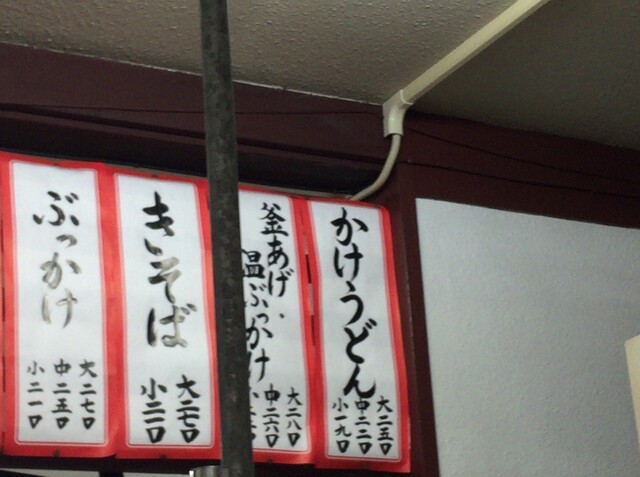 かけうどん
大二五〇
中二二〇
小一九〇
釜あげ・
温ぶっかけ
大二八〇
中二六〇
きそば
大二七〇
小二一〇
ぶっかけ
大二七〇
中二五〇
小二一〇